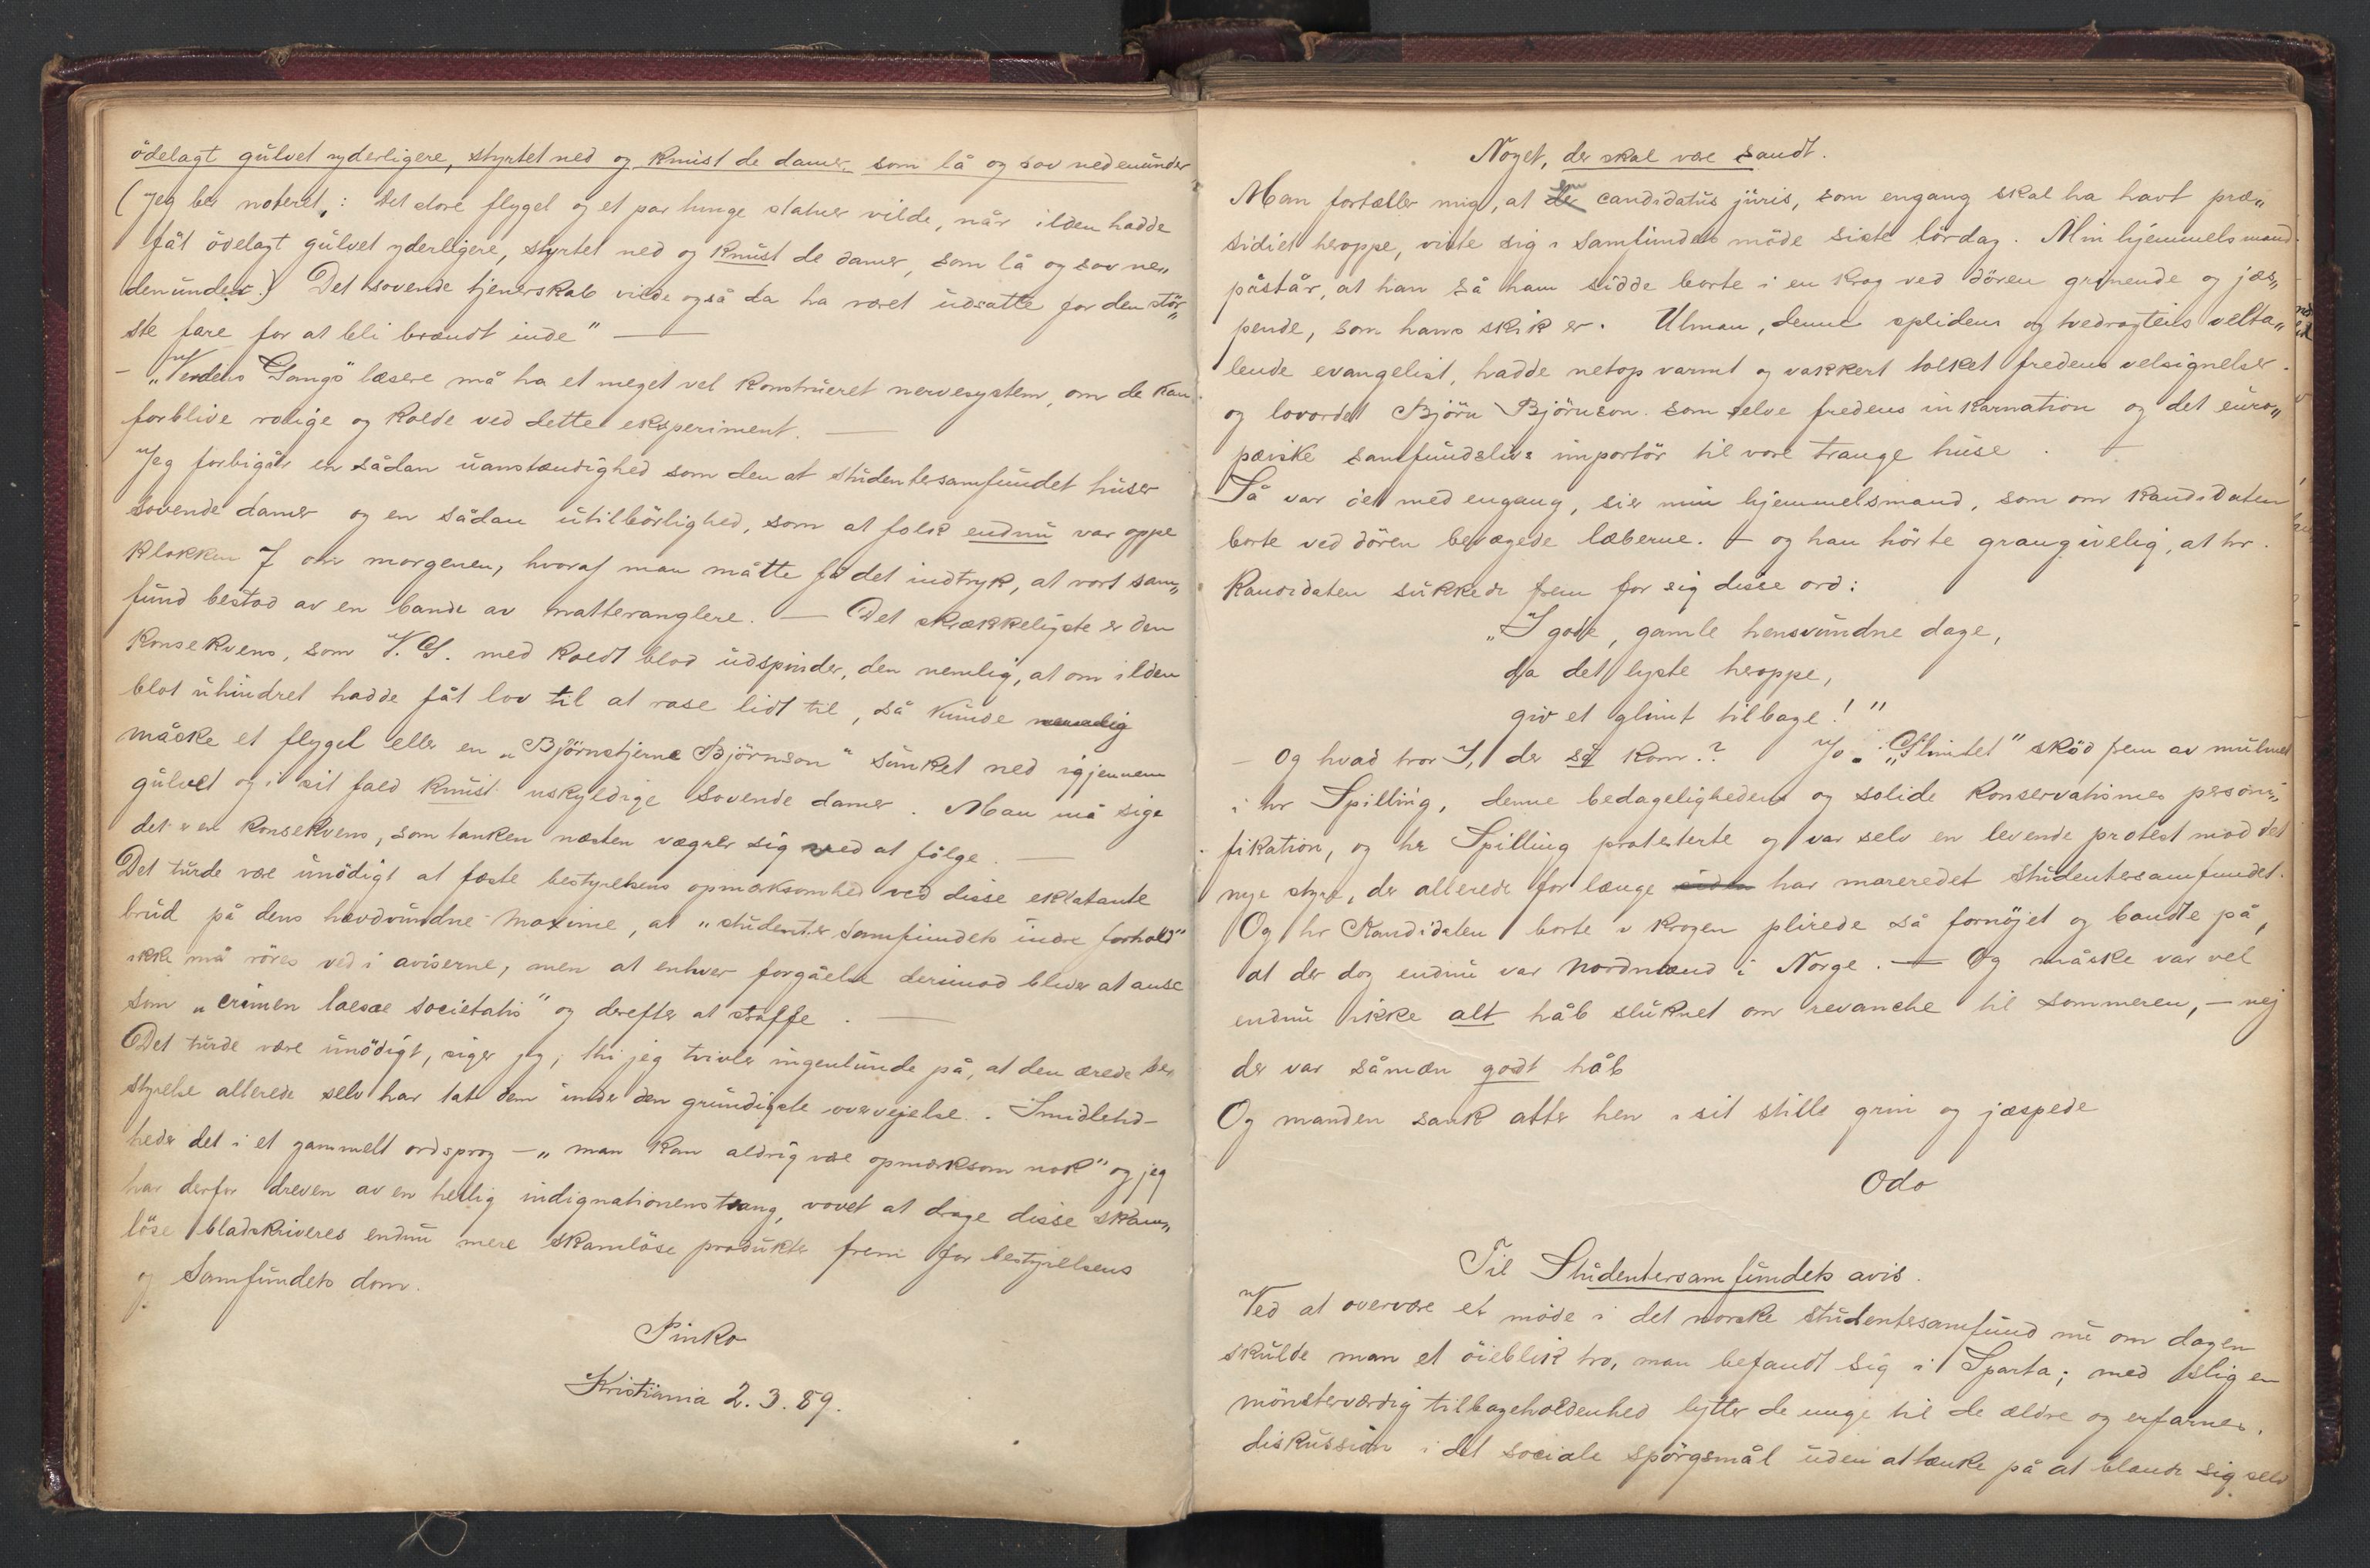 ödelagt gulvet yderligere, styrtet ned og knust de damer som lå og sov nedenunder
(Jeg ber noteret,: det store flygel og et par tunge statuer vilde, når ilden hadde
fåt ödelagt gulvet yderligere, styrtet ned og knust de damer, som lå og sov ne„
denunder.) Det sovende tjenerskab vilde også da ha været udsatte for den stör„
ste fare for at bli brændt inde" —
– „Verdens Gangs" læsere må ha et meget vel konstrueret nervesystem, om de kan
forblive rolige og kolde ved dette eksperiment. —
Jeg forbigår en sådan uanstændighed som den at studentersamfundet huser
sovende damer og en sådan utilbörlighed, som at folk endnu var oppe
klokken 7 om morgenen, hvoraf man måtte få det indtryk, at vort sam„
fund bestod av en bande av natteranglere. — Det skrækkeligste er den
konsekvens, som V. G. med koldt blod udspinder, den nemlig, at om ilden
blot uhindret hadde fåt lov til at rase lidt til, så kunde nemlig
måske et flygel eller en „Björnstjerne Björnson" sunket ned igjennem
gulvet og i sit fald knust uskyldige sovende damer. Man må sige
det er en konsekvens, som tanken næsten vægrer sig ved at fölge. —
Det turde være unödigt at fæste bestyrelsens opmærksomhed ved disse eklatante
brud på dens hævdvundne maxime, at „studentersamfundets indre forhold"
ikke må röres ved i aviserne, men at enhver forgåelse derimod bliver at anse
som „crimen laesae societatis" og derefter at straffe. —
Det turde være unödigt, siger jeg, thi jeg tvivler ingenlunde på, at den ærede be„
styrelse allerede selv har tat dem under den grundigste overvejelse. Imidlertid–
heder det i et gammelt ordsprog –„ man kan aldrig være opmærksom nok" og jeg
har derfor dreven av en hellig indignationens trang, vovet at drage disse skam„
löse bladskriveres endnu mere skamlöse produkter frem for bestyrelsens
og Samfundets dom.
Pinko
Kristiania 2.3.89.
Noget, der skal være sandt.
Man fortæller mig, at en candidatus juris, som engang skal ha havt præ„
sidiet heroppe, viste sig i Samfundets möde siste lördag. Min hjemmelsmand
påstår, at han så ham sidde borte i en krog ved dören grinende og jæs„
pende, som hans skik er. Ulman, denne splidens og tvedragtens velta„
lende evangelist, hadde netop varmt og vakkert tolket fredens velsignelser
og lovordet Björn Björnson som selve fredens inkarnation og det euro„
pæiske samfundslivs importör til vore trange huse. —
Så var det med engang, sier min hjemmelsmand, som om kandidaten
borte ved dören bevægede læberne. – og han hörte grangivelig, at hr.
Kandidaten sukkede frem for sig disse ord:
„I gode, gamle hensvundne dage,
da det lyste heroppe,
giv et glimt tilbage!"
– Og hvad tror I, der så kom?? Jo. „Glimtet" sköd frem av mulmet
i hr Spilling, denne bedagelighedens og solide konservatismes personi„
fikation, og hr Spilling protesterte og var selv en levende protest mod det
nye styre, der allerede for længe siden har mareredet studentersamfundet.
Og hr Kandidaten borte i krogen plirede så fornöjet og bandte på,
at der dog endnu var nordmænd i Norge. — Og måske var vel
endnu ikke alt håb sluknet om revanche til sommeren, – nej
der var såmæn godt håb
Og manden sank atter hen i sit stille grin og jæspede
Odo
Til Studentersamfundets avis.
Ved at overvære et möde i det norske studentersamfund nu om dagen
skulde man et öieblik tro, man befandt sig i Sparta; med slig en
mönsterværdig tilbageholdenhed lytter de unge til de ældre og erfarnes
diskussion i det sociale spörgsmål uden at tænke på at blande sig selv